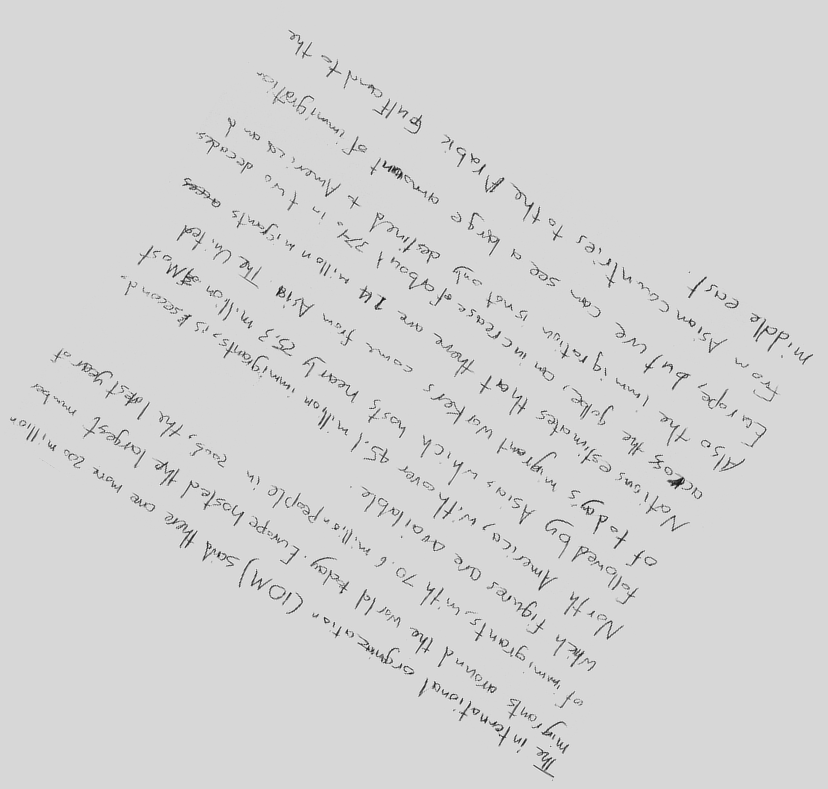 The international orgnization (IOM) said there are more 200 million
migrants around the world today. Europe hosted the largest number
of immigrants, with 70.6 million people in 2005, the latest year of
which figures are available.
North America, with over 45.1 million immigrants, is second,
followed by Asia, which hosts nearly 25.3 million. Most
of today's migrant workers come from Asia. The United
Nations estimates that there are 214 million migrants
across the globe, an increase of about 37% in two decades.
Also the immigration is not only destined to America and
Europe, but we can see a large amount of immigration
from Asian countries to the Arabic gulf and to the
middle east.